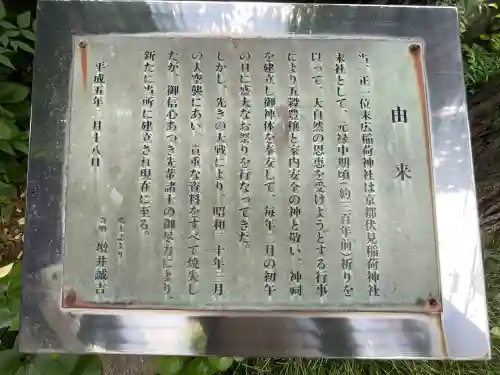 由来
当、正一位末広稲荷神社は京都伏見稲荷神社
末社として、元禄中期頃（約三百年前）祈りを
以って、大自然の恩恵を受けようとする行事
により五穀豊穣と家内安全の神と敬い、神祠
を建立し御神体を奉安して、毎年二月の初午
の日に盛大なお祭りを行なってきた。
しかし、先きの大戦により、昭和二十年三月
の大空襲にあい、貴重な資料をすべて焼失し
たが、御信心あつき先輩諸士の御尽力により、
新たに当所に建立され現在に至る。
平成五年二月十八日
寄贈 増井誠吉